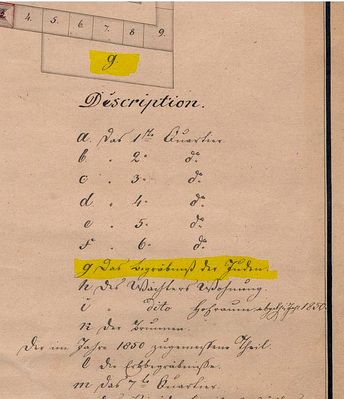 3. 4. 5. 6. 7. 8. 9.
g.
Déscription.
a. Das 1ste Quartier
b. " 2. do
c. " 3. do
d. " 4. do
e. " 5. do
f. " 6. do
g Das Begräbniß der Juden.
h Des Wächters Wohnung.
i " dito Hofraum 1850.
k Der Brunnen.
Der im Jahre 1850 zugemessene Theil.
l die Erbbegräbniße.
m das 7te Quartier.